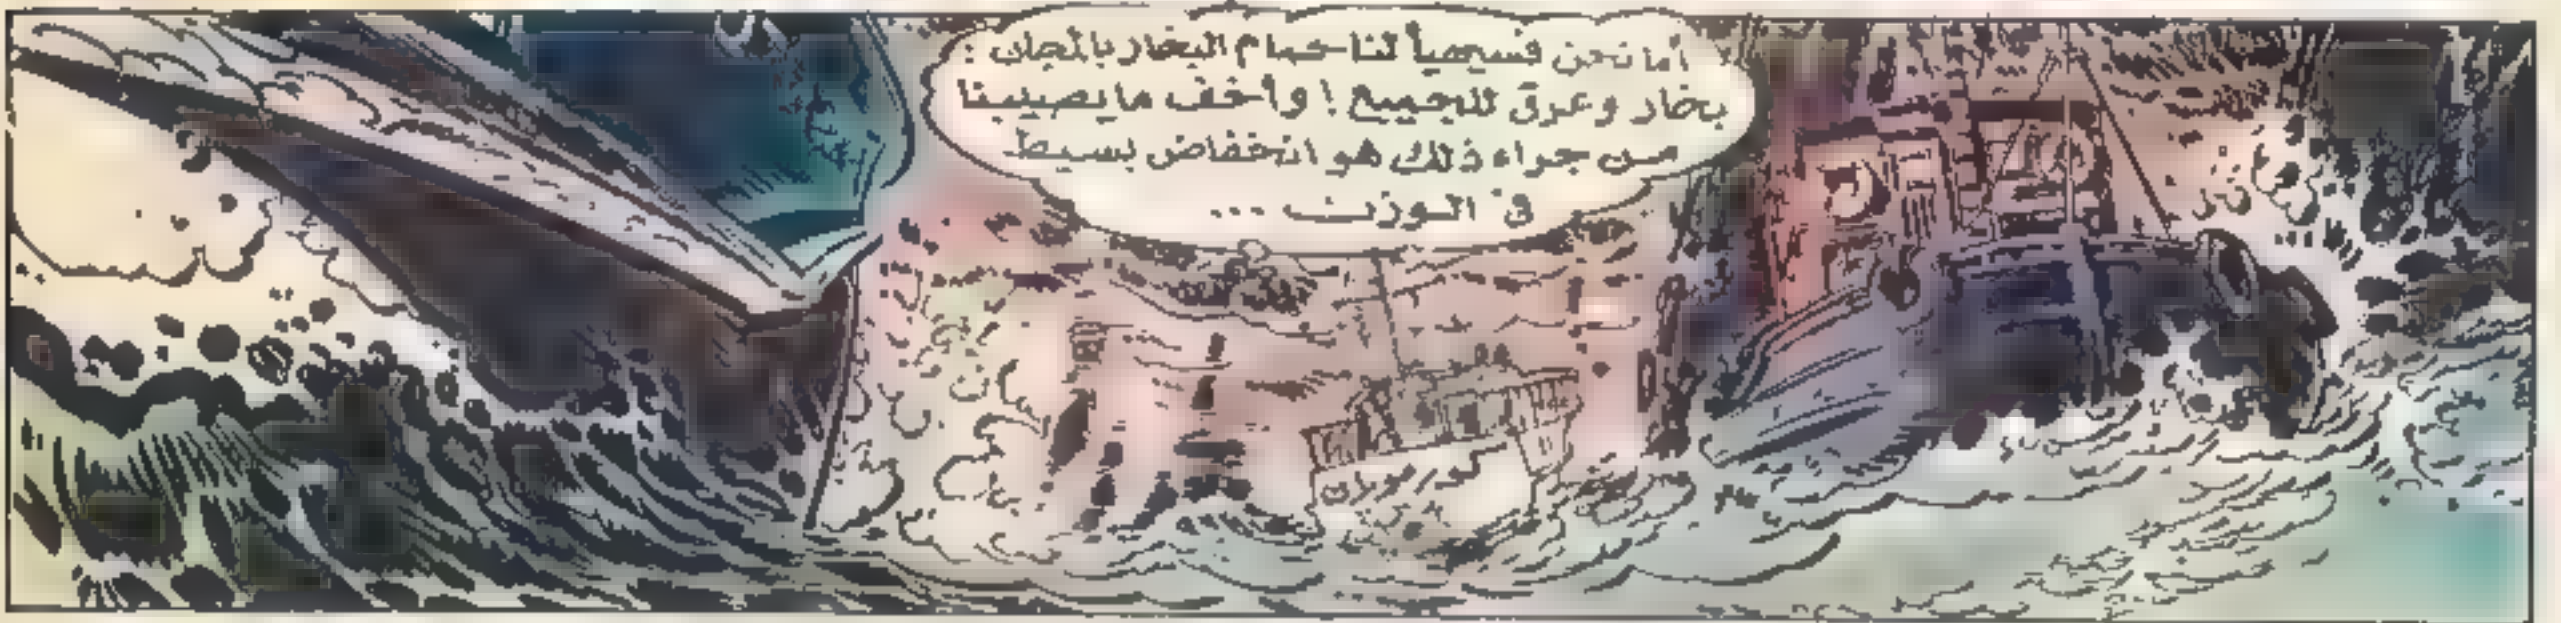 أما نحن فسيهيأ لنا حمام البخار بالمجان :
بخار وعرق للجميع ! وأخف ما يصيبنا
من جراء ذلك هو انخفاض بسيط
في الوزن ...
كورموران